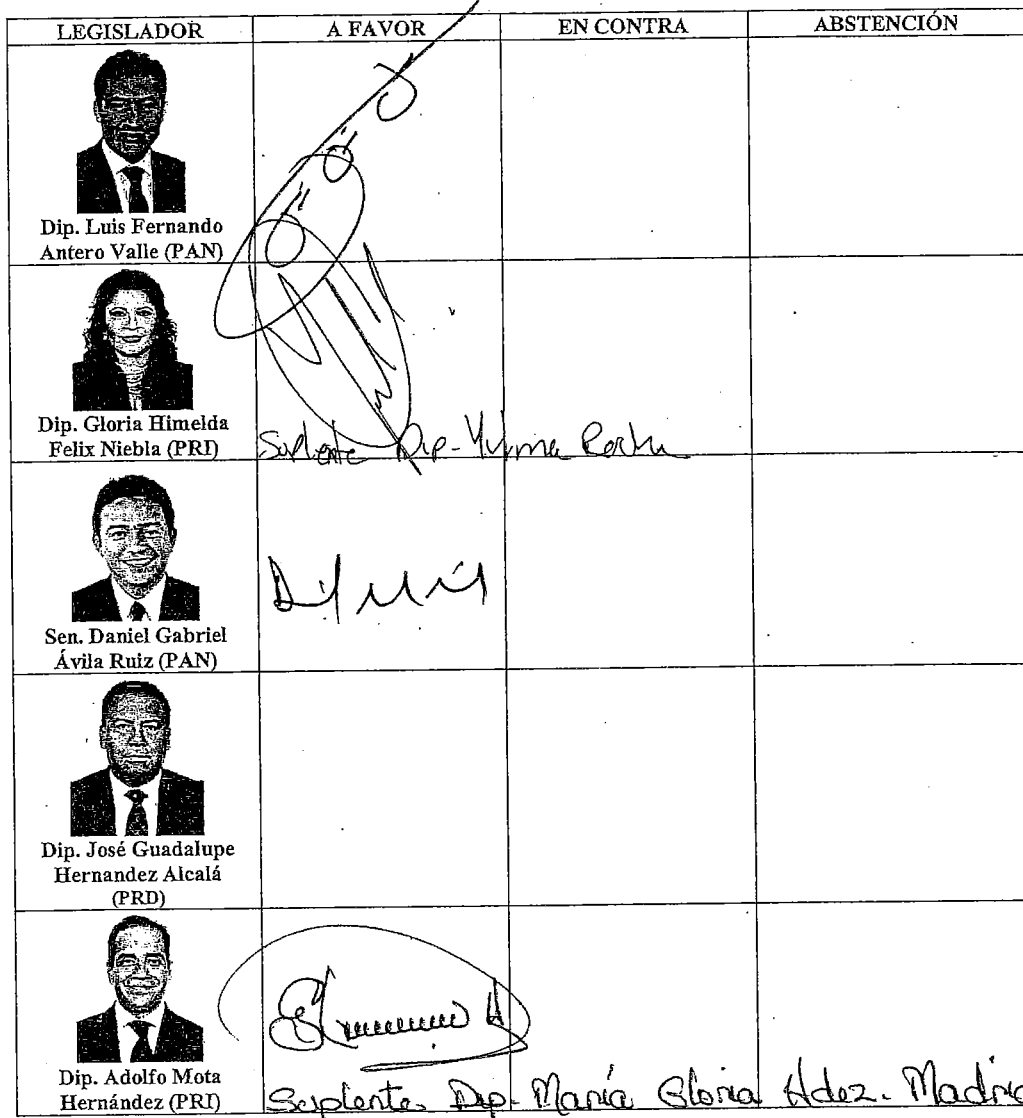 LEGISLADOR A FAVOR EN CONTRA ABSTENCIÓN
Dip. Luis Fernando
Antero Valle (PAN)
Dip. Gloria Himelda
Felix Niebla (PRI)
Suplente Dip-
Sen. Daniel Gabriel
Ávila Ruiz (PAN)
Dip. José Guadalupe
Hernandez Alcalá
(PRD)
Dip. Adolfo Mota
Hernández (PRI)
Suplente Dip. María Gloria Hdez. Madrid